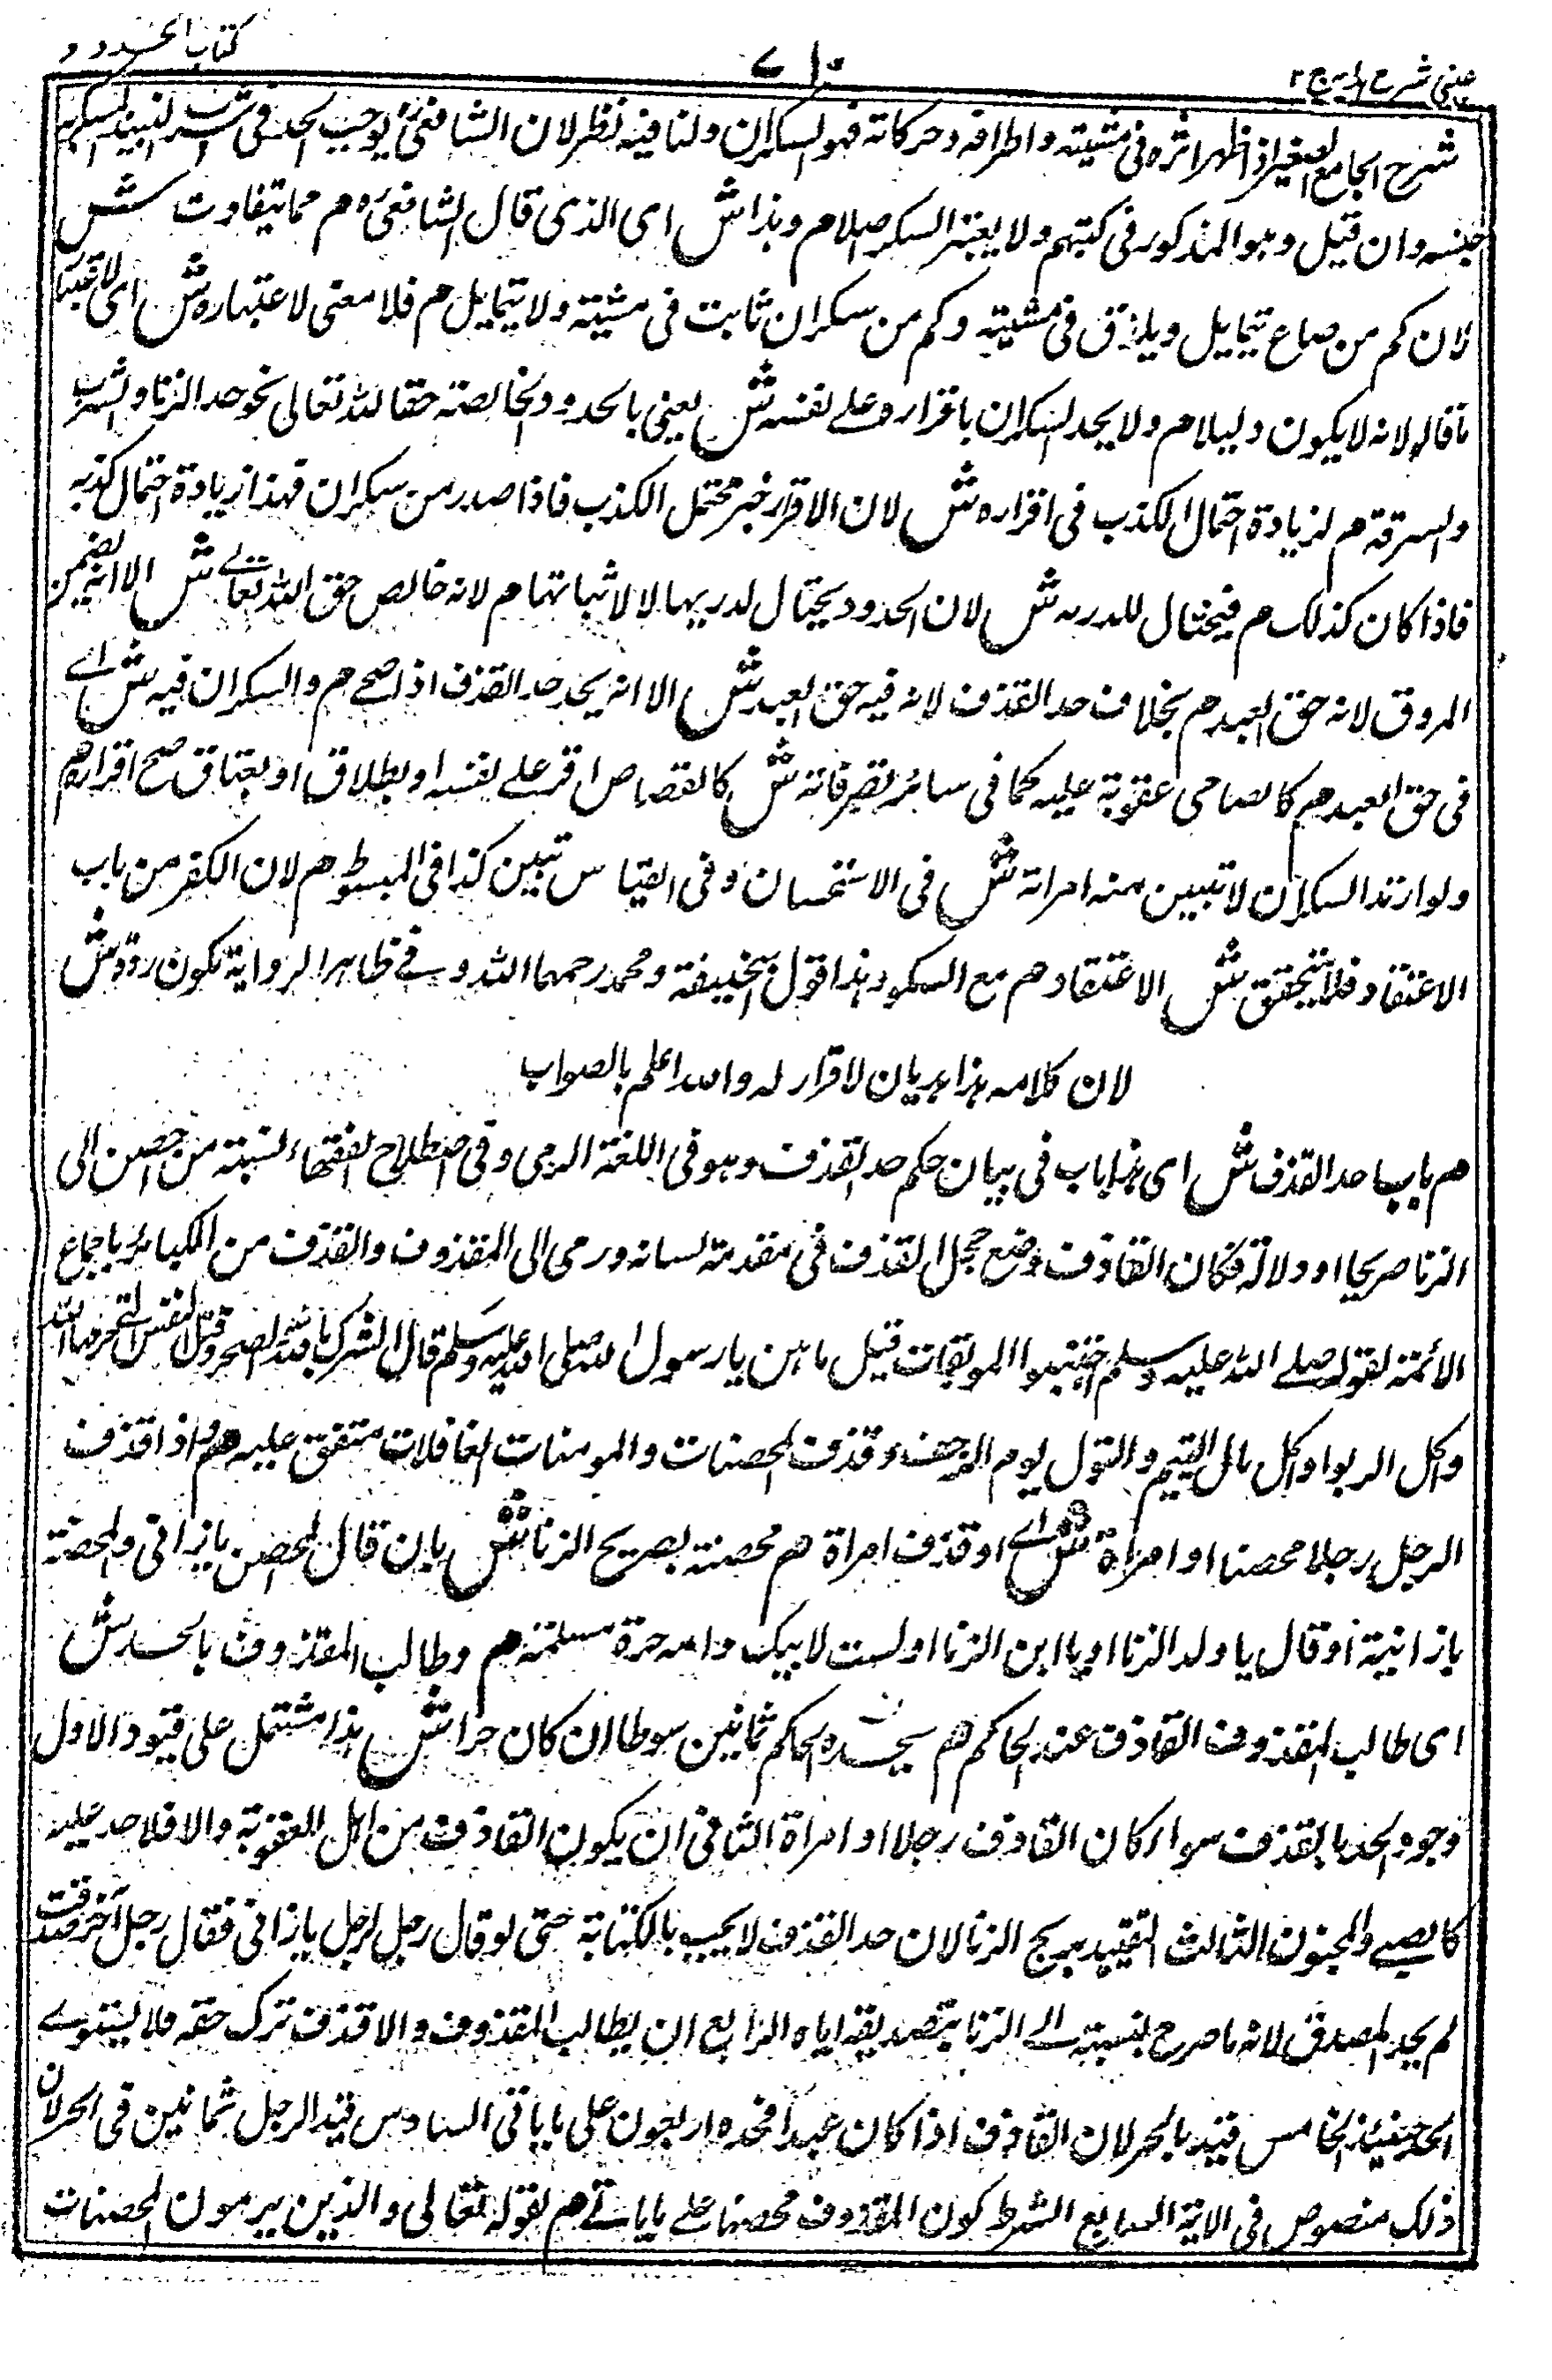 عینی شرح ہدایہ ج ۲
۷۱۰
کتاب الحدود
شرح الجامع الصغیر اذا ظہر اثرہ فی مشیتہ و اطرافہ و حرکاتہ فہو السکران ولنا فیہ نظر لان الشافعیؒ یوجب الحد فی شرب النبیذ المسکر
جنسہ وان قیل وہو المذکور فی کتبہم ولا یعتبر السکر اصلا م وہذا ش ای الذی قال الشافعیؒ م مما یتفاوت ش
لان کم من صاح یتمایل ویلزق فی مشیتہ وکم من سکران ثابت فی مشیتہ ولا یتمایل م فلا معنی لاعتبارہ ش ای لاعتبار
ما قالہ لانہ لا یکون دلیلا م ولا یحد السکران باقرارہ علے نفسہ ش یعنی بالحدود الخالصۃ حقا للہ تعالی نحو حد الزنا والشرب
والسرقۃ م لزیادۃ احتمال الکذب فی اقرارہ ش لان الاقرار خبر محتمل الکذب فاذا صدر من سکران فہذا زیادۃ احتمال کذبہ
فاذا کان کذلک م فیحتال للدرء ش لان الحدود یحتال لدریہا لا لاثباتہا م لانہ خالص حق اللہ تعالے ش الا انہ یضمن
المسروق لانہ حق العبد م بخلاف حد القذف لانہ فیہ حق العبد ش الا انہ یحد حد القذف اذا صحے م والسکران فیہ ش اے
فی حق العبد م کالصاحی عقوبۃ علیہ کما فی سائر تصرفاتہ ش کالقصاص اقر علے نفسہ او بطلاق او بعتاق صح اقرارہ م
ولو ارتد السکران لا تبین منہ امراتہ ش فی الاستحسان وفی القیاس تبین کذا فی المبسوط م لان الکفر من باب
الاعتقاد فلا یتحقق ش الاعتقاد م مع السکر وہذا قول ابیحنیفۃ ومحمد رحمہما اللہ وفے ظاہر الروایۃ تکون ردۃ ش
لان کلامہ ہذا ہذیان لا قرار لہ واللہ اعلم بالصواب
م باب حد القذف ش ای ہذا باب فی بیان حکم حد القذف وہو فی اللغۃ الرمی وفی اصطلاح الفقہاء نسبۃ من احصن الی
الزنا صریحا او دلالۃ فکان القاذف وضع حجر القذف فی مقدمۃ لسانہ ورمی الی المقذوف والقذف من الکبائر باجماع
الائمۃ لقولہ صلے اللہ علیہ وسلم اجتنبوا الموبقات قیل ما ہن یا رسول اللہ صلی اللہ علیہ وسلم قال الشرک باللہ والسحر وقتل النفس التی حرمہا اللہ
واکل الربوا واکل مال الیتیم والتولی یوم الزحف وقذف المحصنات والمومنات الغافلات متفق علیہ م واذا قذف
الرجل رجلا محصنا او امراۃ ش اے او قذف امراۃ م محصنۃ بصریح الزنا ش بان قال لمحصن یا زانی والمحصنۃ
یا زانیۃ او قال یا ولد الزنا او یا ابن الزنا او لست لابیک وامہ حرۃ مسلمۃ م وطالب المقذوف بالحد ش
ای طالب المقذوف القاذف عند الحاکم م یحدہ الحاکم ثمانین سوطا ان کان حرا ش ہذا مشتمل علی قیود الاول
وجود الحد بالقذف سواء کان القاذف رجلا او امراۃ الثانی ان یکون القاذف من اہل العقوبۃ والا فلا حد علیہ
کالصبے والمجنون الثالث التقیید بصریح الزنا لان حد القذف لا یجب بالکتابۃ حتی لو قال رجل لرجل یا زانی فقال رجل آخر صدقت
لم یحد المصدق لانہ ما صرح بنسبتہ الے الزنا بتصدیقہ ایاہ الرابع ان یطالب المقذوف والا قذف ترک حقہ فلا یستوے
الحد حینئذ الخامس قید بالحر لان القاذف اذا کان عبدا فحدہ اربعون علی ما یاتی السادس قید الرجل ثمانین فی الحر لان
ذلک منصوص فی الایۃ السابع الشرط کون المقذوف محصنا علے ما یاتے م لقولہ تعالی والذین یرمون المحصنات